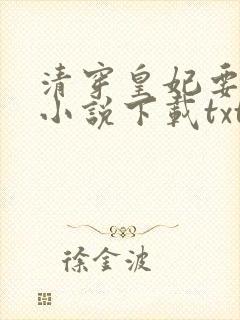 清穿皇妃要
小说下载txt
徐金波